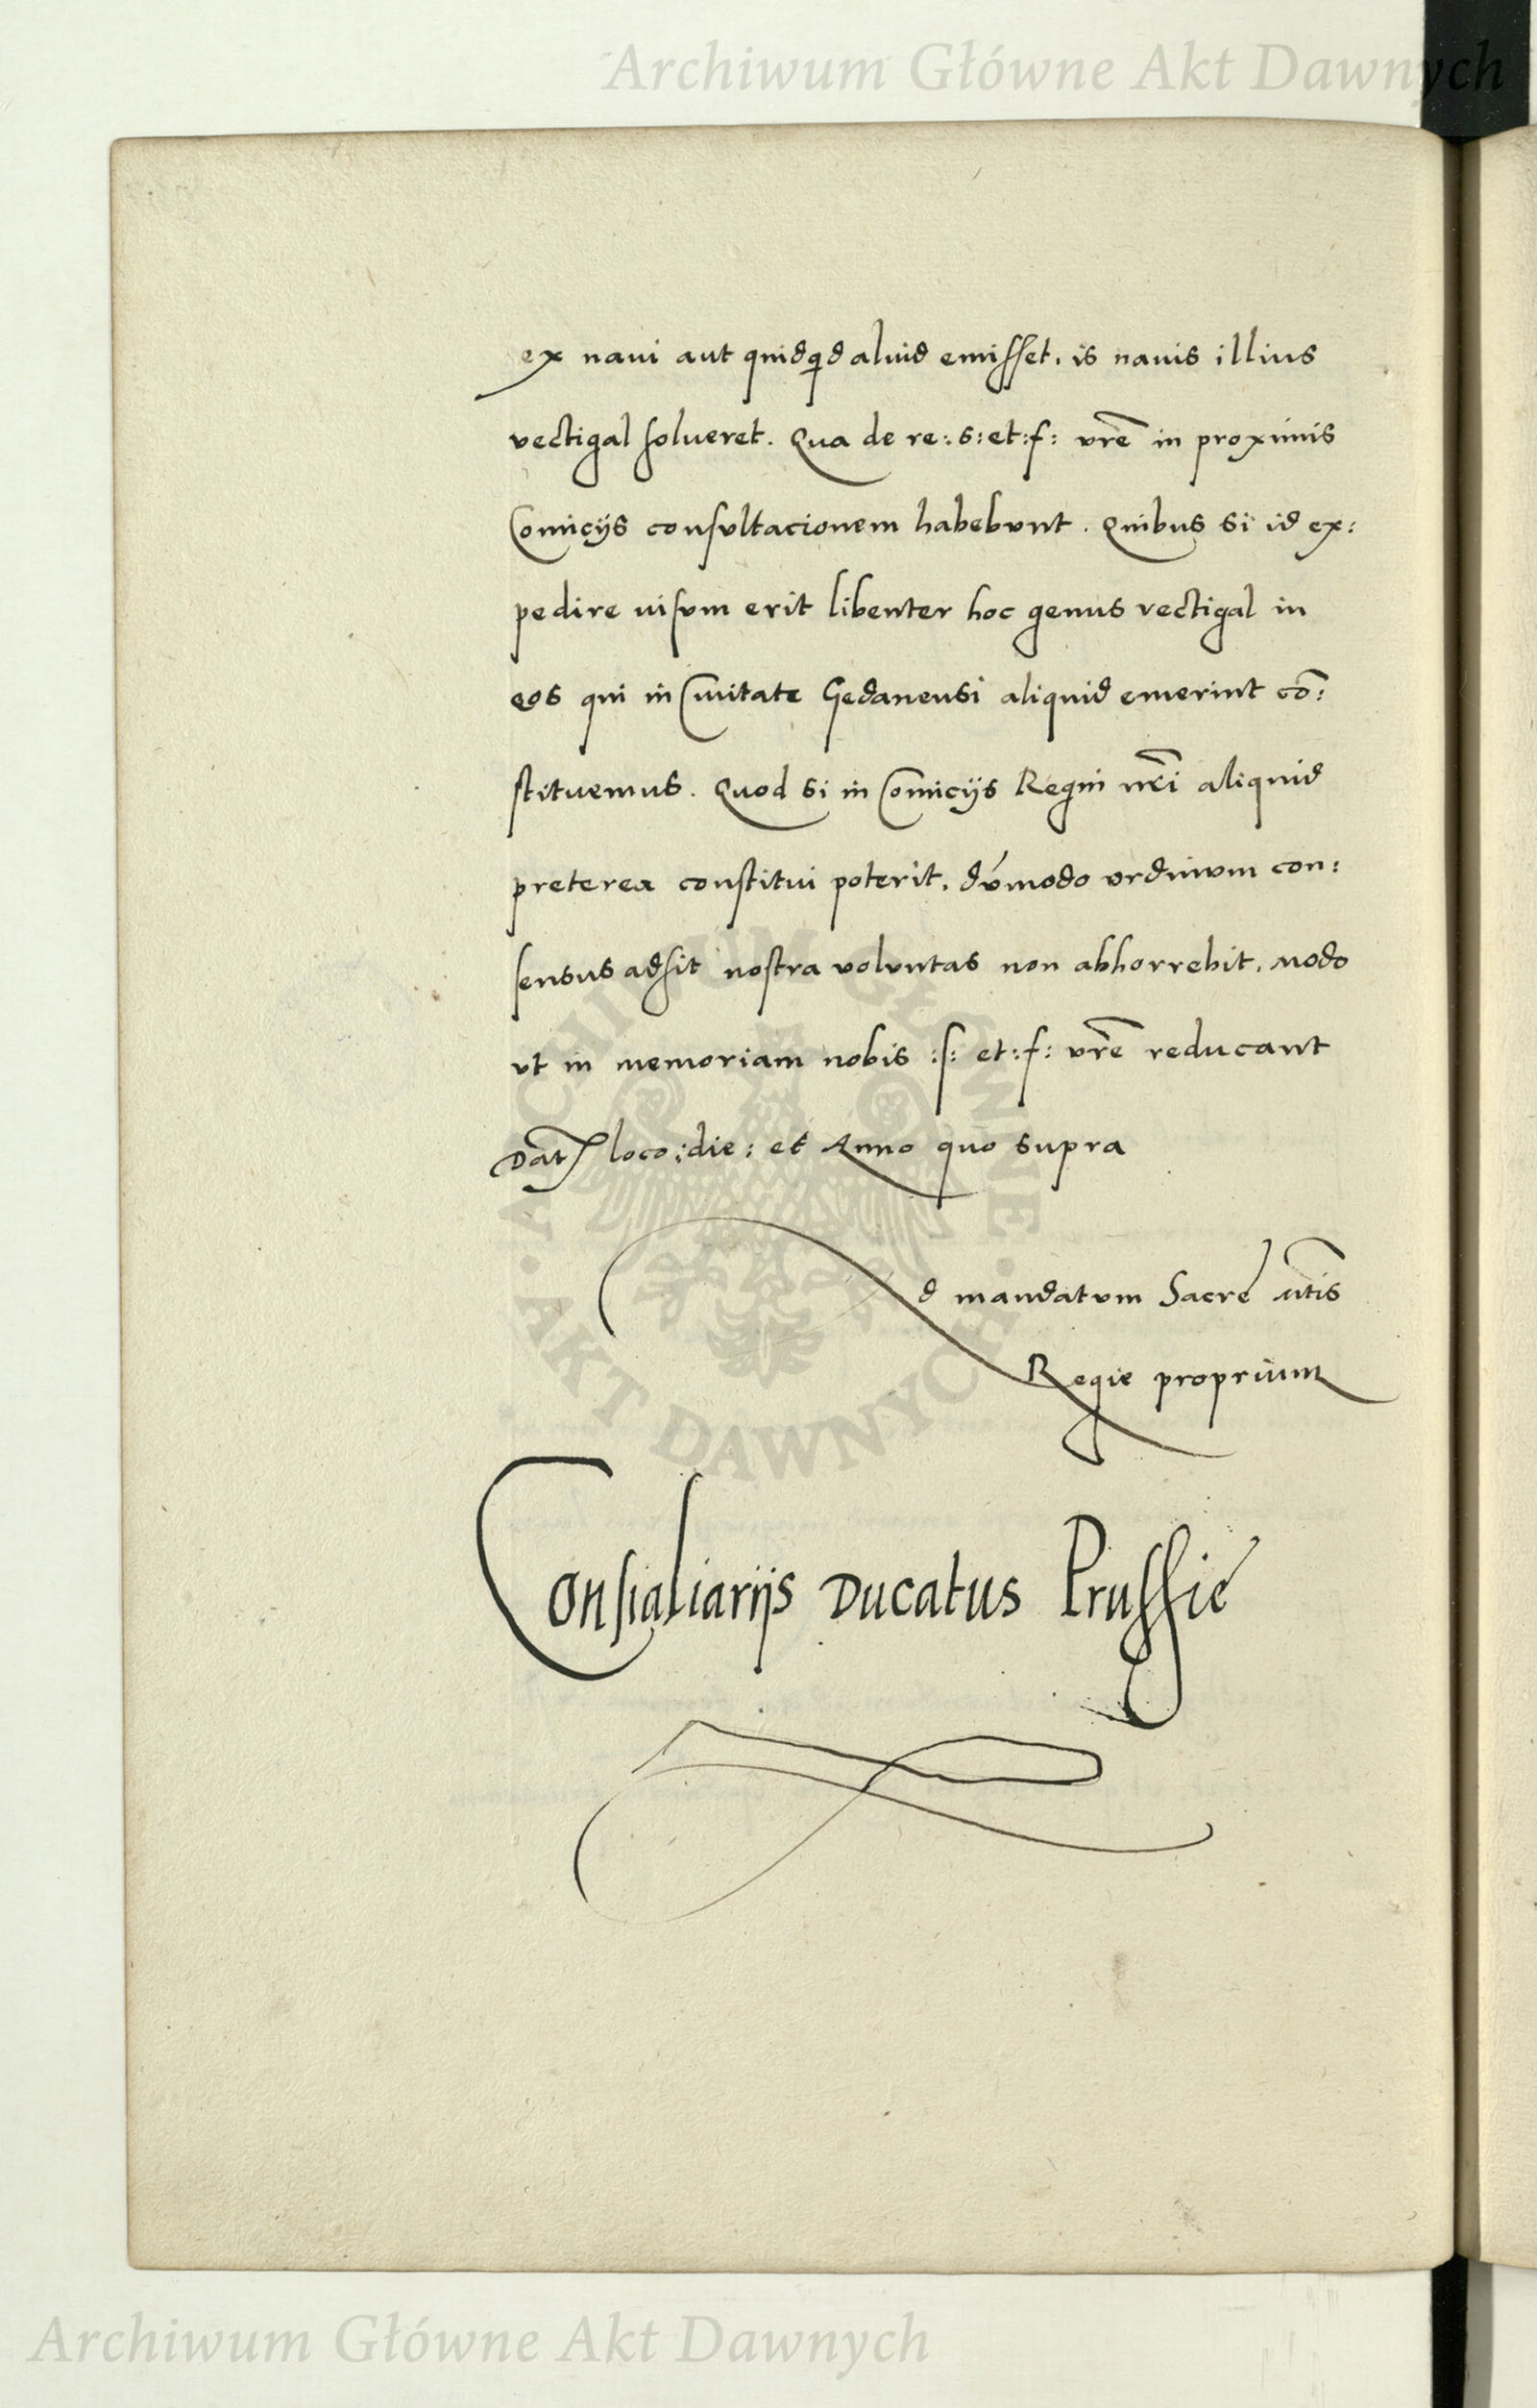 Archiwum Główne Akt Dawnych
ex naui aut quidqid aliud emisset, is nauis illius
vectigal solueret. Qua de re :s: et :f: vr̃e in proximis
Comicijs consultacionem habebunt. Quibus si id ex:
pedire uisum erit libenter hoc genus vectigal in
eos qui in Ciuitate Gedanensi aliquid emerint cõ:
stituemus. Quod si in Comicijs Regni nr̃i aliquid
preterea constitui poterit, dúmodo ordinum con:
sensus adsit nostra voluntas non abhorrebit, modo
vt in memoriam nobis :s: et :f: vr̃e reducant
Dat̃ loco: die: et Anno quo supra
Ad mandatum Sacre mt̃is
Regie proprium
Consialiarijs Ducatus Prussie
ARCHIWUM GŁÓWNE · AKT DAWNYCH ·
Archiwum Główne Akt Dawnych